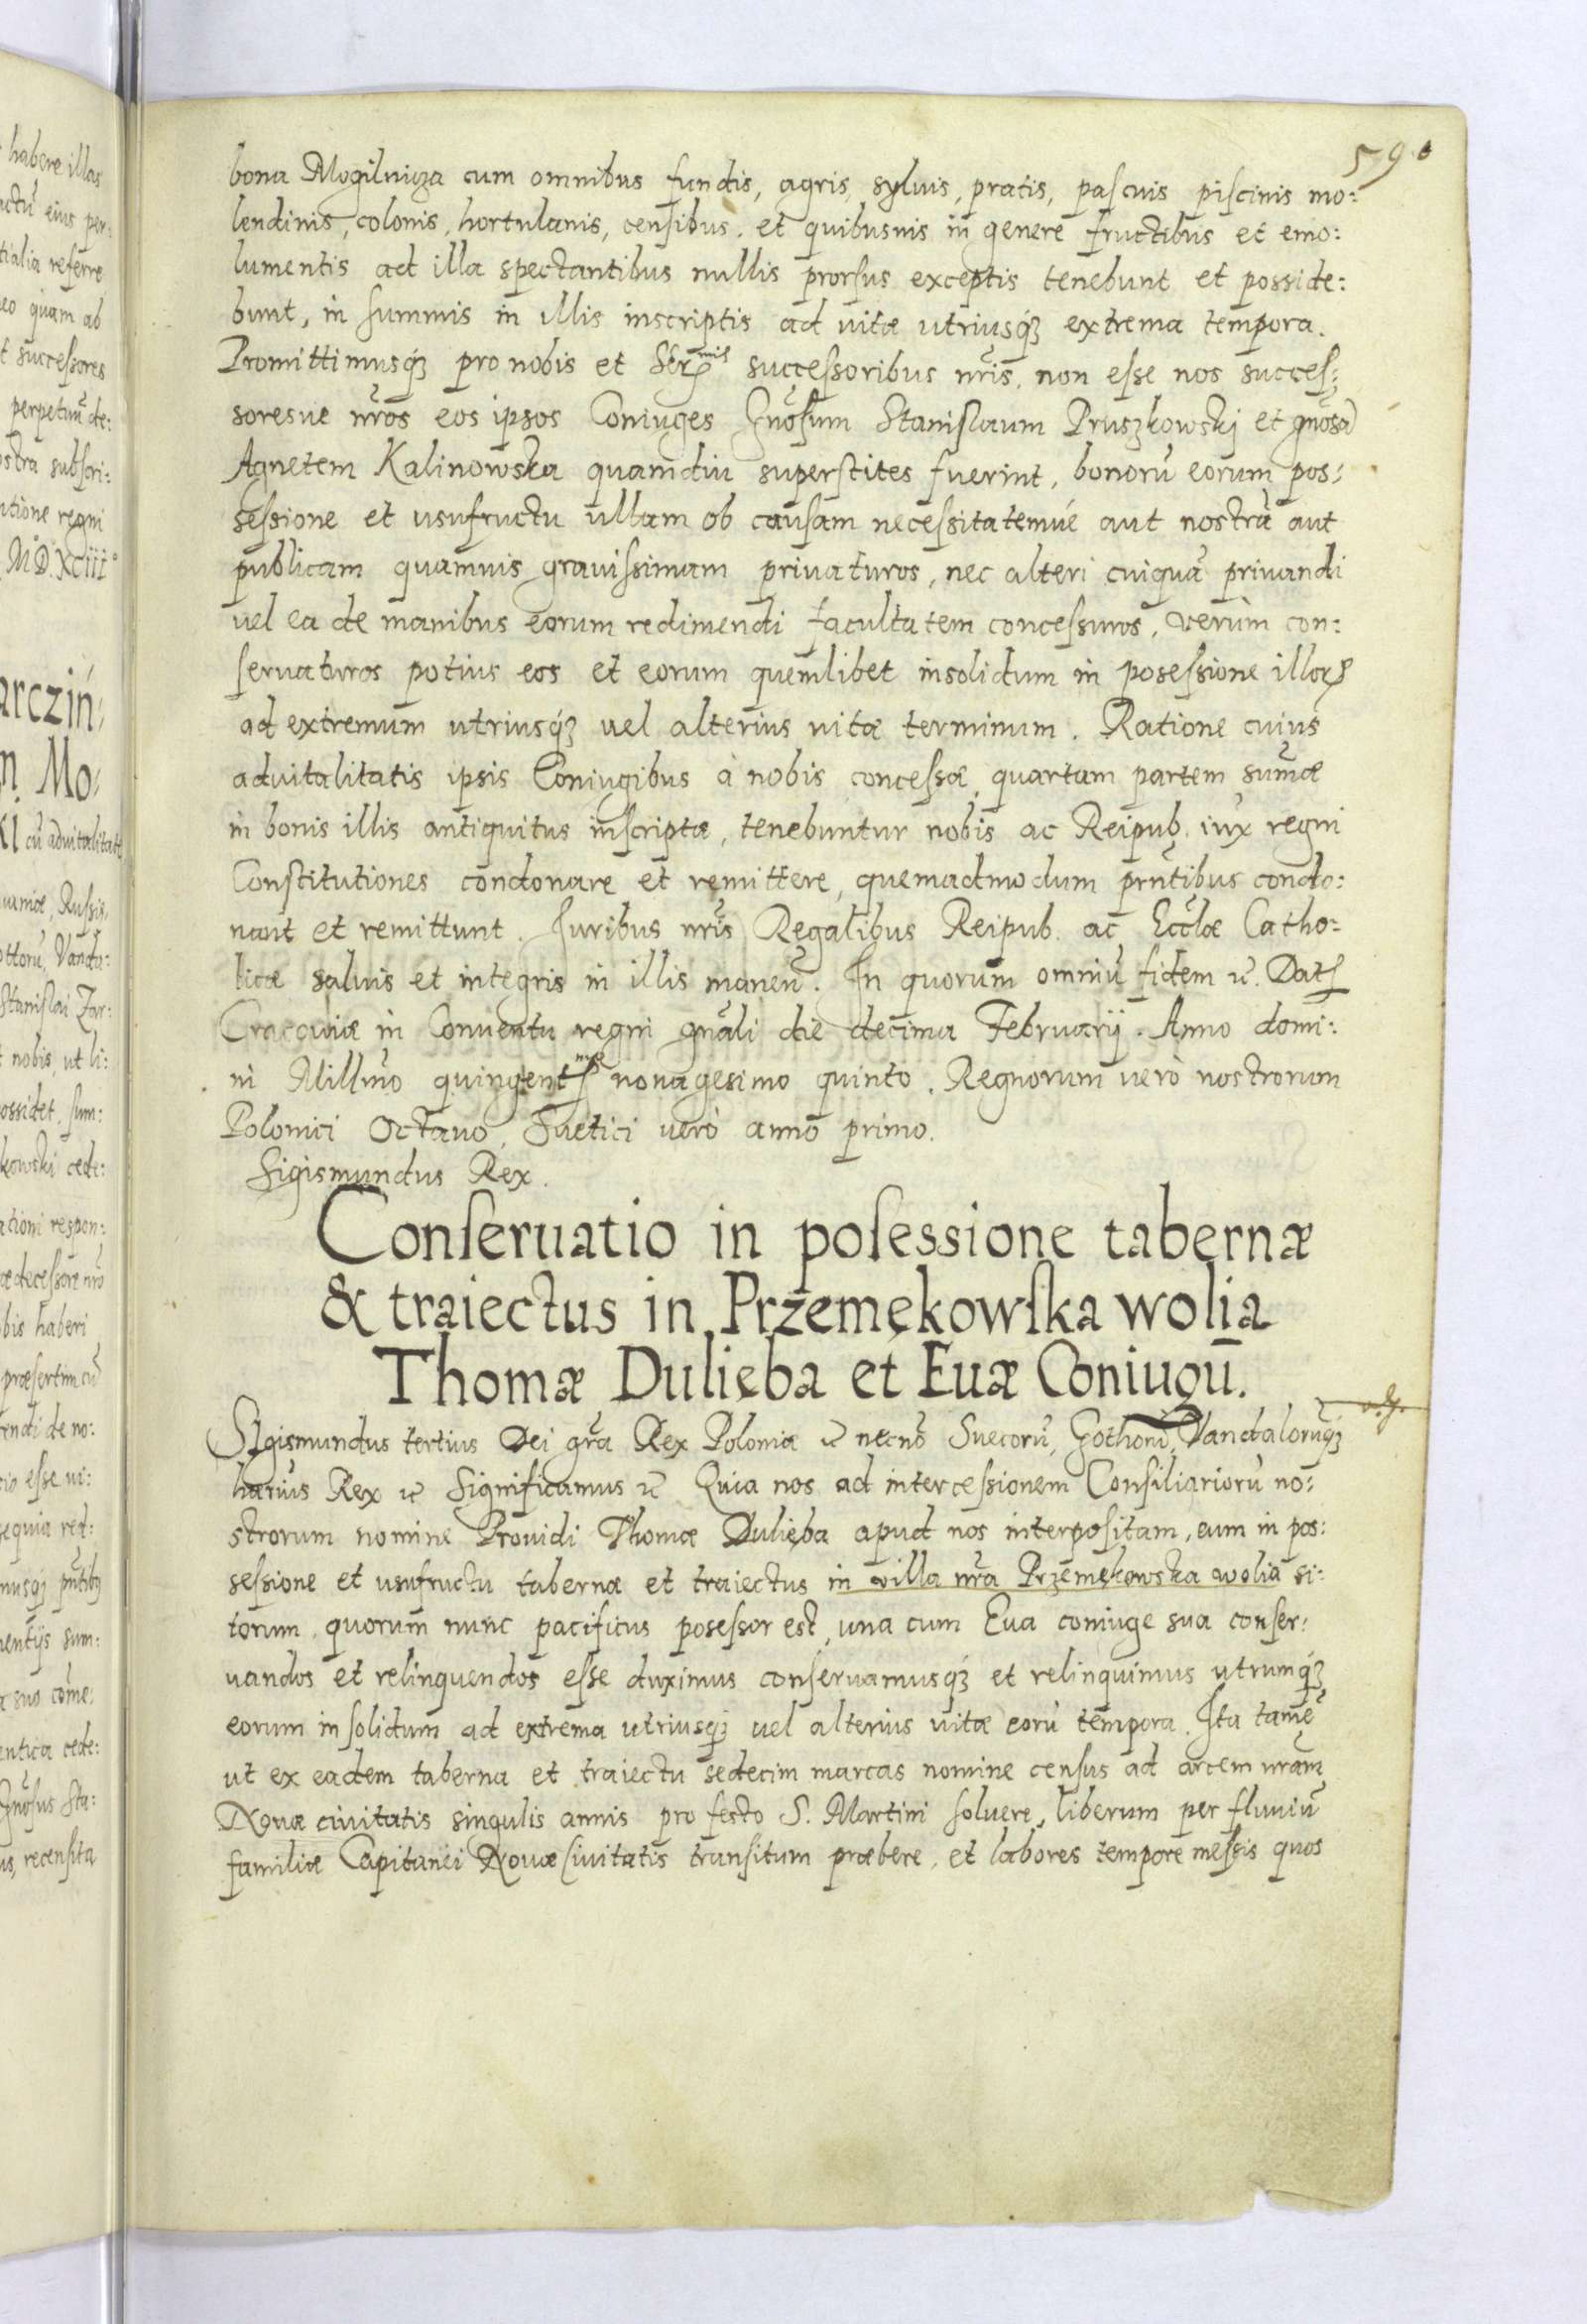 590
bona Mogilnicza cum omnibus fundis, agris, syluis, pratis, pascuis piscinis mo:
lendinis, colonis, hortulanis, censibus. et quibusuis in genere fructibus et emo:
lumentis ad illa spectantibus nullis prorsus exceptis tenebunt et posside:
bunt, in summis in illis inscriptis ad vitæ utriusq́ꝫ extrema tempora.
Promittimusq́ꝫ pro nobis et Ser^mis successoribus nr̃is, non esse nos succes:
soresue nr̃os eos ipsos Coniuges Gnõsum Stanislaum Pruszkowskj et gnõsã
Agnetem Kalinowska quamdiu superstites fuerint, bonorũ eorum pos:
sessione et usufructu ullam ob causam necessitatemúe aut nostrã aut
publicam quamuis grauissimam priuaturos, nec alteri cuiquã priuandi
vel ea de manibus eorum redimendi facultatem concessuros, verùm con:
seruaturos potius eos et eorum quemlibet insolidum in posessione illoꝝ
ad extremum utriusq́ꝫ vel alterius vitæ terminum. Ratione cuius
aduitalitatis ipsis Coniugibus à nobis concessæ, quartam partem sum̃æ
in bonis illis antiquitus inscriptæ, tenebuntur nobis ac Reipub. iux̃ regni
Constitutiones condonare et remittere, quemadmodum prñtibus condo:
nant et remittunt. Juribus nr̃is Regalibus Reipub. ac Eccl̃æ Catho:
licæ saluis et integris in illis maneñ. In quorum omniũ fidem ꝛc. Datꝭ
Cracouiæ in Conuentu regni gnãli die decima Februarij. Anno domi:
ni Millmõ quingentꝭ^mo nonagesimo quinto. Regnorum verò nostrorum
Polonici Octauo, Suetici verò anno primo.
Sigismundus Rex.
Conseruatio in posessione tabernæ
& traiectus in Przemękowska wolia
Thomæ Dulięba et Euæ Coniugũ.
SIgismundus tertius Dei grã Rex Poloniæ ꝛc necnõ Suecorũ, Gothorũ, Vandalorũq́ꝫ
hærius Rex ꝛc Significamus ꝛc Quia nos ad intercessionem Consiliariorũ no:
strorum nomine Prouidi Thomæ Dulięba apud nos interpositam, eum in pos:
sessione et usufructu tabernæ et traiectus in villa nr̃a Przemękowska wolia si:
torum, quorum nunc pacificus posessor est, una cum Eua coniuge sua conser:
uandos et relinquendos esse duximus conseruamusq́ꝫ et relinquimus utrumq́ꝫ
eorum insolidum ad extrema utriusq́ꝫ vel alterius vitæ eorũ tempora. Ita tamẽ
ut ex eadem taberna et traiectu sedecim marcas nomine census ad arcem nr̃am
Nouæ ciuitatis singulis annis pro festo S. Martini soluere, liberum per fluuiũ
familiæ Capitanei Nouæ Ciuitatis transitum præbere, et labores tempore messis quos